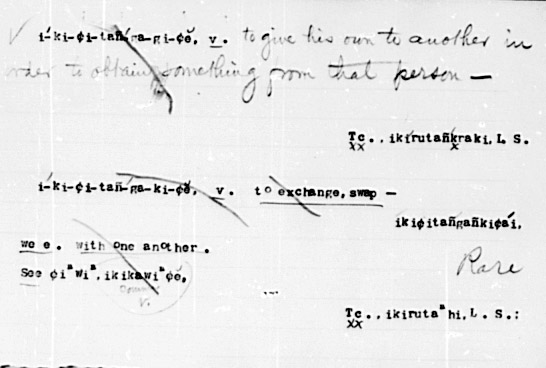 í-ki-ȼi-tañ́ga-gi-ȼĕ, v. to give his own to another in
order to obtain something from that person —
Tc., ikírutañkraki, L S.
í-ki-ȼi-tañ-ga-ki-ȼĕ, v. to exchange, swap —
ikiȼitañgañkiȼaí,
we e. with one another.
See ȼiⁿwiⁿ, ikikawiⁿȼĕ,
Rare
V.
Tc., ikirutaⁿhi, L. S.: